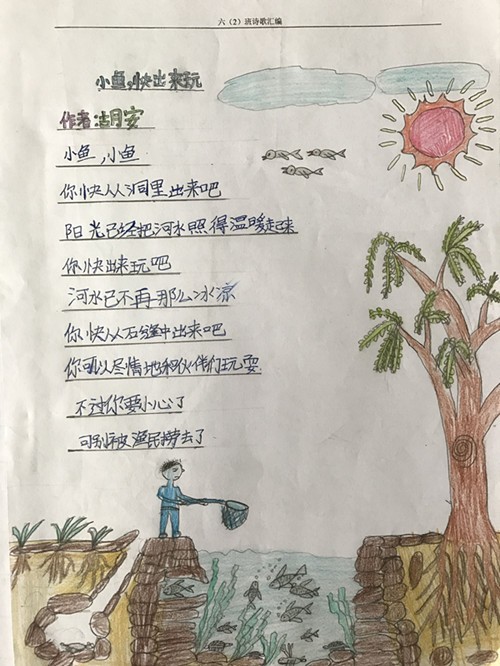 六（2）班诗歌汇编
小鱼，快出来玩
作者 洁月字
小鱼，小鱼
你快从洞里出来吧
阳光已经把河水照得温暖起来
你快出来玩吧
河水已不再那么冰凉
你快从石缝中出来吧
你可以尽情地和伙伴们玩耍
不过你要小心了
可别被渔民捞去了